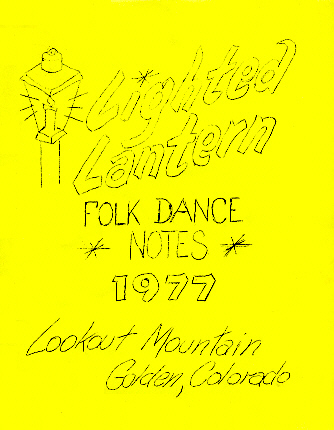 Lighted
Lantern
FOLK DANCE
* NOTES *
1977
Lookout Mountain
Golden, Colorado